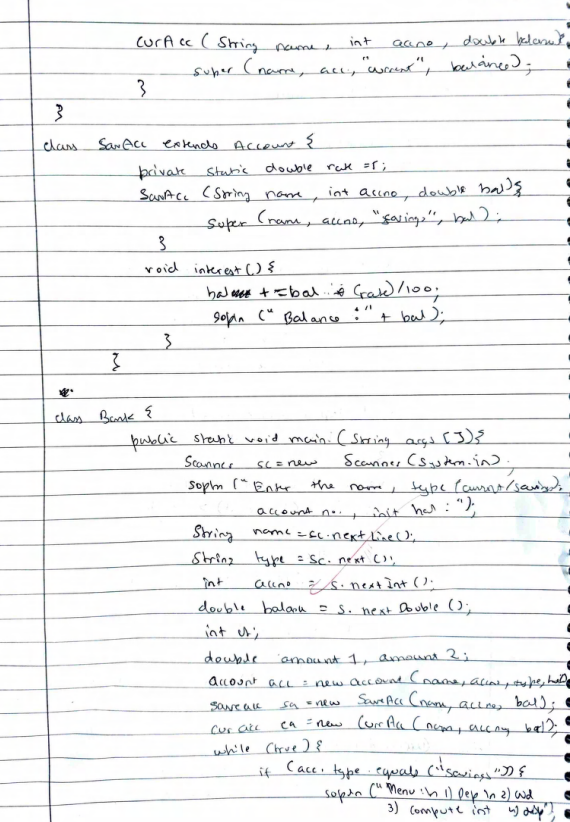 CurAcc ( String name, int accno, double balance){
super (name, acc, "current", balance);
}
}
class SavAcc extends Account {
private static double rate =5;
SavAcc (String name, int accno, double bal){
super (name, accno, "savings", bal);
}
void interest () {
bal += bal * (rate)/100;
sopln (" Balance :" + bal);
}
}
class Bank {
public static void main (String args []){
Scanner sc = new Scanner (System.in).
sopln (" Enter the name, type (current/savings),
account no., init bal : ");
String name = sc.nextLine();
String type = sc.next();
int accno = s.nextInt ();
double balance = s.next Double ();
int ch;
double amount 1, amount 2;
account acc = new account (name, accno, type, bal)
savacc sa = new SavAcc (name, accno, bal);
cur acc ca = new CurrAcc (name, accno, bal);
while (true) {
if (acc. type. equals ("savings")) {
sopln (" Menu :\n 1) Dep \n 2) wd
3) compute int 4) disp"